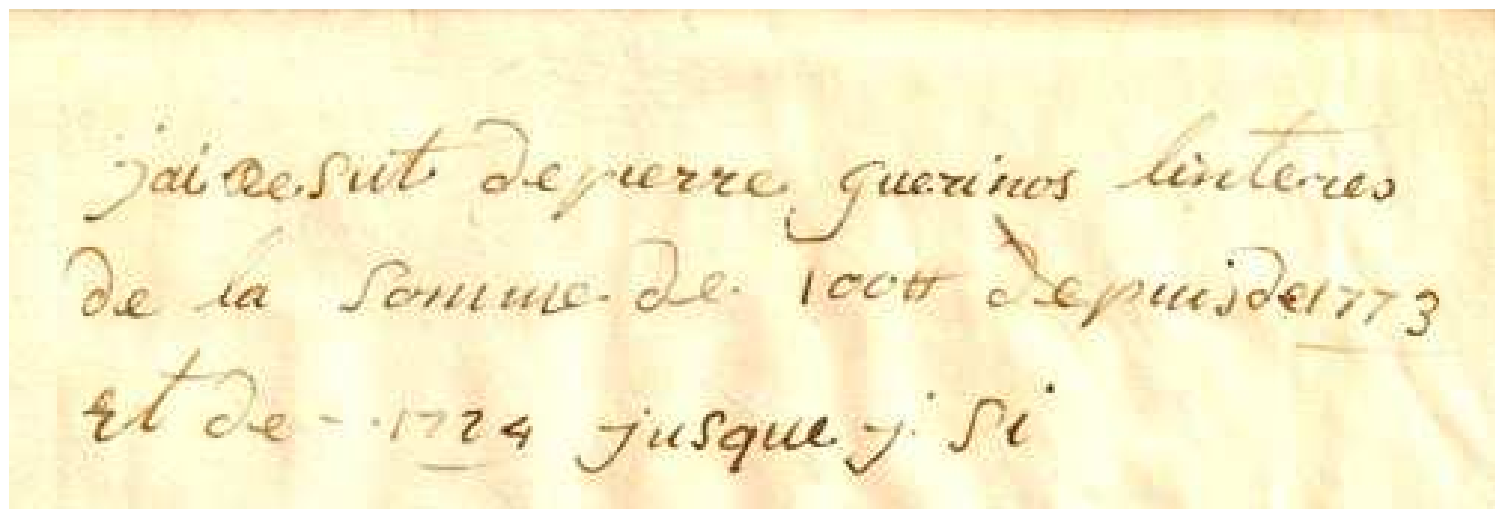 jai Resut de pierre guerinos linteres
de la somme de 100tt depuis de 1773
Et de - 1724 jusque j si